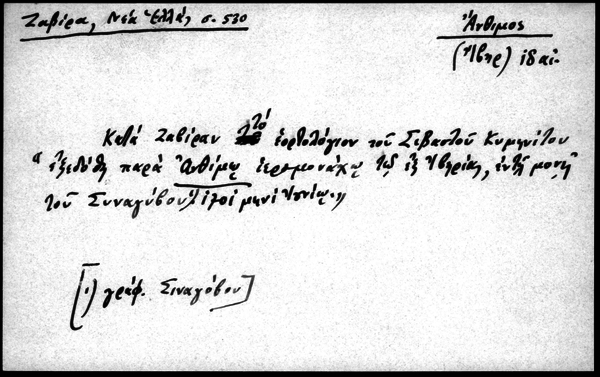 Ζαβίρα, Νέα Ἑλλάς, σ. 530
Ἄνθιμος
(Ἴβηρ)
Κατά Ζαβίραν τό ἑορτολόγιον τοῦ Σεβαστοῦ Κυμηνίτου
"ἐξεδόθη παρά Ἀνθίμῳ ἱερομονάχῳ τῷ ἐξ Ἰβηρίας, ἐν τῇ μονῇ
τοῦ Συναγώβου, μηνί Ἰουνίῳ."
[(1) γράφ. Σιναγώβου]